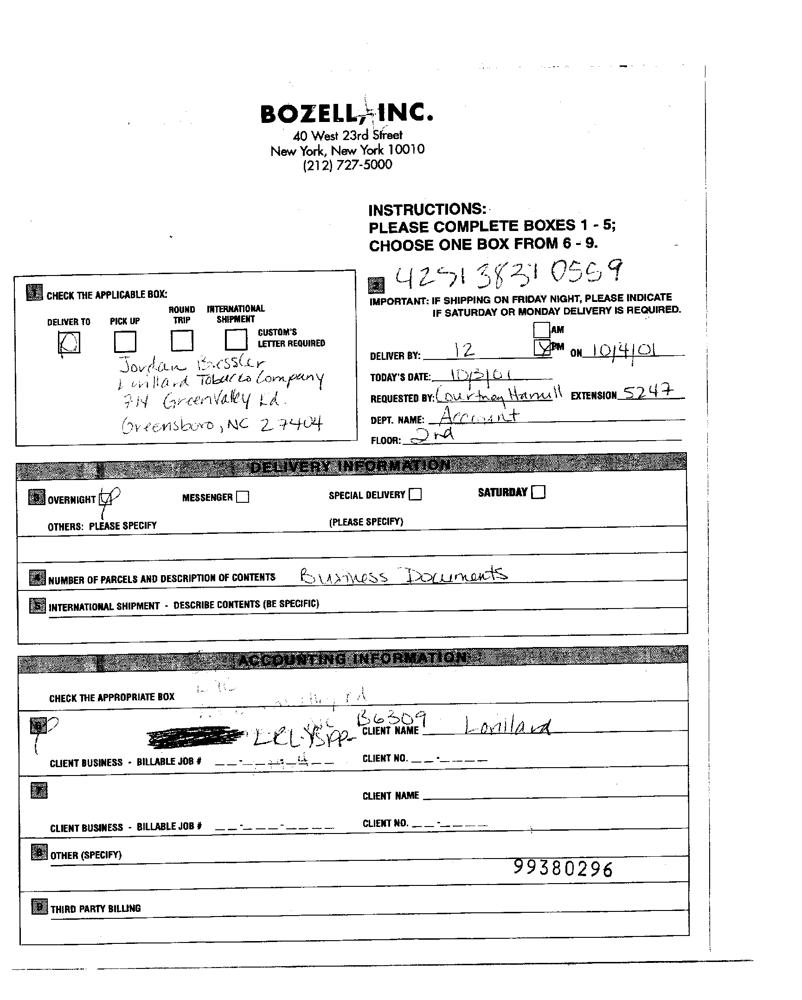 BOZELL, INC.
40 West 23rd Street
New York, New York 10010
(212) 727-5000
INSTRUCTIONS:
PLEASE COMPLETE BOXES 1 - 5;
CHOOSE ONE BOX FROM 6 - 9.
1 CHECK THE APPLICABLE BOX:
DELIVER TO PICK UP ROUND TRIP INTERNATIONAL SHIPMENT
CUSTOM'S
LETTER REQUIRED
Jordan Bressler
Lorillard Tobacco Company
714 Green Valley Rd.
Greensboro, NC 27404
2 425138310559
IMPORTANT: IF SHIPPING ON FRIDAY NIGHT, PLEASE INDICATE
IF SATURDAY OR MONDAY DELIVERY IS REQUIRED.
AM
DELIVER BY: 12 PM ON 10/4/01
TODAY'S DATE: 10/3/01
REQUESTED BY: Courtney EXTENSION 5247
DEPT. NAME: Account
FLOOR: 2nd
DELIVERY INFORMATION
3 OVERNIGHT MESSENGER SPECIAL DELIVERY SATURDAY
OTHERS: PLEASE SPECIFY (PLEASE SPECIFY)
4 NUMBER OF PARCELS AND DESCRIPTION OF CONTENTS Business Documents
5 INTERNATIONAL SHIPMENT - DESCRIBE CONTENTS (BE SPECIFIC)
ACCOUNTING INFORMATION
CHECK THE APPROPRIATE BOX
6 B6309
CLIENT NAME Lorillard
CLIENT BUSINESS - BILLABLE JOB # CLIENT NO.
7 CLIENT NAME
CLIENT BUSINESS - BILLABLE JOB # CLIENT NO.
8 OTHER (SPECIFY)
99380296
9 THIRD PARTY BILLING